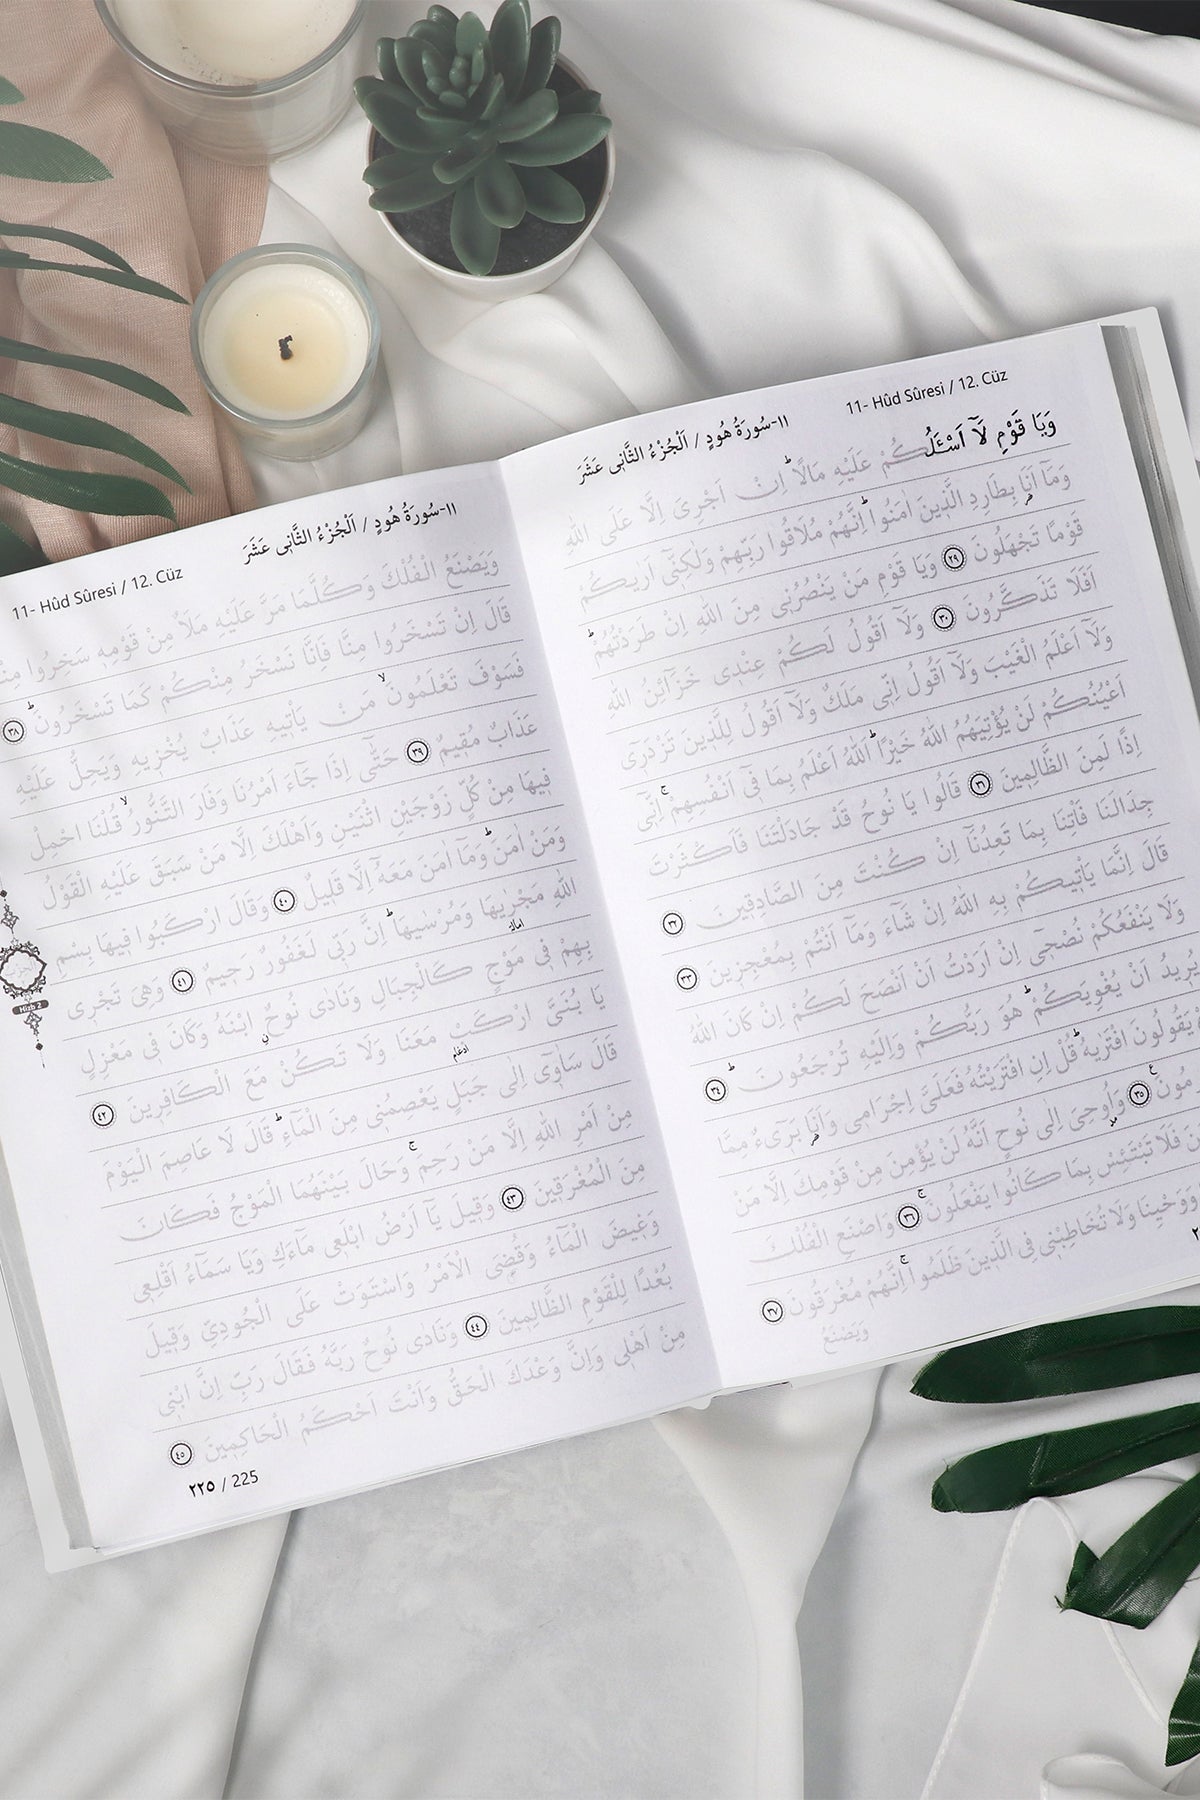 11- Hûd Sûresi / 12. Cüz
١١-سُورَةُ هُودٍ / اَلْجُزْءُ الثَّانِى عَشَرَ
وَيَا قَوْمِ لَٓا اَسْـَٔلُكُمْ عَلَيْهِ مَالًاۜ اِنْ اَجْرِىَ اِلَّا عَلَى اللّٰهِ
وَمَٓا اَنَا۬ بِطَارِدِ الَّذٖينَ اٰمَنُواۜ اِنَّهُمْ مُلَاقُوا رَبِّهِمْ وَلٰكِنّٖٓى اَرٰيكُمْ
قَوْمًا تَجْهَلُونَ ﴿٢٩﴾ وَيَا قَوْمِ مَنْ يَنْصُرُنٖى مِنَ اللّٰهِ اِنْ طَرَدْتُهُمْۜ
اَفَلَا تَذَكَّرُونَ ﴿٣٠﴾ وَلَٓا اَقُولُ لَكُمْ عِنْدٖى خَزَٓائِنُ اللّٰهِ
وَلَٓا اَعْلَمُ الْغَيْبَ وَلَٓا اَقُولُ اِنّٖى مَلَكٌ وَلَٓا اَقُولُ لِلَّذٖينَ تَزْدَرٖٓى
اَعْيُنُكُمْ لَنْ يُؤْتِيَهُمُ اللّٰهُ خَيْرًاۜ اَللّٰهُ اَعْلَمُ بِمَا فٖٓى اَنْفُسِهِمْۚ اِنّٖٓى
اِذًا لَمِنَ الظَّالِمٖينَ ﴿٣١﴾ قَالُوا يَا نُوحُ قَدْ جَادَلْتَنَا فَاَكْثَرْتَ
جِدَالَنَا فَاْتِنَا بِمَا تَعِدُنَٓا اِنْ كُنْتَ مِنَ الصَّادِقٖينَ ﴿٣٢﴾
قَالَ اِنَّمَا يَاْتٖيكُمْ بِهِ اللّٰهُ اِنْ شَٓاءَ وَمَٓا اَنْتُمْ بِمُعْجِزٖينَ ﴿٣٣﴾
وَلَا يَنْفَعُكُمْ نُصْحٖٓى اِنْ اَرَدْتُ اَنْ اَنْصَحَ لَكُمْ اِنْ كَانَ اللّٰهُ
يُرٖيدُ اَنْ يُغْوِيَكُمْۜ هُوَ رَبُّكُمْ وَاِلَيْهِ تُرْجَعُونَۜ ﴿٣٤﴾
يَقُولُونَ افْتَرٰيهُۜ قُلْ اِنِ افْتَرَيْتُهُ فَعَلَىَّ اِجْرَامٖى وَاَنَا۬ بَرٖٓىءٌ مِمَّا
﴿٣٥﴾ وَاُو۫حِىَ اِلٰى نُوحٍ اَنَّهُ لَنْ يُؤْمِنَ مِنْ قَوْمِكَ اِلَّا مَنْ
فَلَا تَبْتَئِسْ بِمَا كَانُوا يَفْعَلُونَۚ ﴿٣٦﴾ وَاصْنَعِ الْفُلْكَ
وَوَحْيِنَا وَلَا تُخَاطِبْنٖى فِى الَّذٖينَ ظَلَمُواۚ اِنَّهُمْ مُغْرَقُونَ ﴿٣٧﴾
وَيَصْنَعُ
١١-سُورَةُ هُودٍ / اَلْجُزْءُ الثَّانِى عَشَرَ
11- Hûd Sûresi / 12. Cüz
وَيَصْنَعُ الْفُلْكَ وَكُلَّمَا مَرَّ عَلَيْهِ مَلَأٌ مِنْ قَوْمِهٖ سَخِرُوا
قَالَ اِنْ تَسْخَرُوا مِنَّا فَاِنَّا نَسْخَرُ مِنْكُمْ كَمَا تَسْخَرُونَۜ ﴿٣٨﴾
فَسَوْفَ تَعْلَمُونَۙ مَنْ يَاْتٖيهِ عَذَابٌ يُخْزٖيهِ وَيَحِلُّ عَلَيْهِ
عَذَابٌ مُقٖيمٌ ﴿٣٩﴾ حَتّٰٓى اِذَا جَٓاءَ اَمْرُنَا وَفَارَ التَّنُّورُۙ قُلْنَا احْمِلْ
فٖيهَا مِنْ كُلٍّ زَوْجَيْنِ اثْنَيْنِ وَاَهْلَكَ اِلَّا مَنْ سَبَقَ عَلَيْهِ الْقَوْلُ
وَمَنْ اٰمَنَۜ وَمَٓا اٰمَنَ مَعَهُٓ اِلَّا قَلٖيلٌ ﴿٤٠﴾ وَقَالَ ارْكَبُوا فٖيهَا بِسْمِ
اللّٰهِ مَجْرٰۭيهَا وَمُرْسٰيهَاۜ اِنَّ رَبّٖى لَغَفُورٌ رَحٖيمٌ ﴿٤١﴾ وَهِىَ تَجْرٖى
بِهِمْ فٖى مَوْجٍ كَالْجِبَالِ وَنَادٰى نُوحٌۨ ابْنَهُ وَكَانَ فٖى مَعْزِلٍ
يَا بُنَىَّ ارْكَبْ مَعَنَا وَلَا تَكُنْ مَعَ الْكَافِرٖينَ ﴿٤٢﴾
قَالَ سَاٰوٖٓى اِلٰى جَبَلٍ يَعْصِمُنٖى مِنَ الْمَٓاءِۜ قَالَ لَا عَاصِمَ الْيَوْمَ
مِنْ اَمْرِ اللّٰهِ اِلَّا مَنْ رَحِمَۚ وَحَالَ بَيْنَهُمَا الْمَوْجُ فَكَانَ
مِنَ الْمُغْرَقٖينَ ﴿٤٣﴾ وَقٖيلَ يَٓا اَرْضُ ابْلَعٖى مَٓاءَكِ وَيَا سَمَٓاءُ اَقْلِعٖى
وَغٖيضَ الْمَٓاءُ وَقُضِىَ الْاَمْرُ وَاسْتَوَتْ عَلَى الْجُودِىِّ وَقٖيلَ
بُعْدًا لِلْقَوْمِ الظَّالِمٖينَ ﴿٤٤﴾ وَنَادٰى نُوحٌ رَبَّهُ فَقَالَ رَبِّ اِنَّ ابْنٖى
مِنْ اَهْلٖى وَاِنَّ وَعْدَكَ الْحَقُّ وَاَنْتَ اَحْكَمُ الْحَاكِمٖينَ ﴿٤٥﴾
٢٢٥ / 225